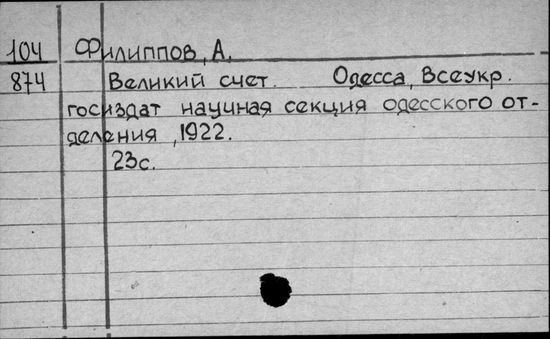 104 Филиппов, А.
874 Великий счет. Одесса, Всеукр.
госиздат научная секция одесского от-
деления, 1922.
23с.